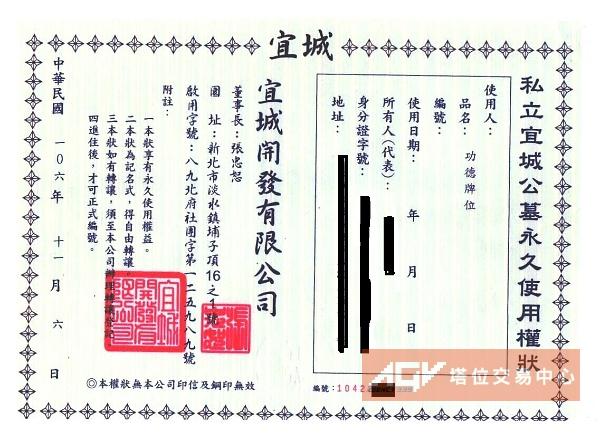 宜城
私立宜城公墓永久使用權狀
使用人：
品名：功德牌位
編號：
使用日期：年月日
所有人(代表)：
身分證字號：
地址：
編號：1042
宜城開發有限公司
董事長：張忠恕
園址：新北市淡水鎮埔子頂16之1號
啟用字號：八九北府社團字第一二五九八九號
附註：
一本狀享有永久使用權益。
二本狀為記名式，得自由轉讓。
三本狀如有轉讓，須至本公司辦理轉讓登記
四進住後，才可正式編號。
中華民國一０六年十一月六日
◎本權狀無本公司印信及鋼印無效
宜城開發有限公司
AGV塔位交易中心